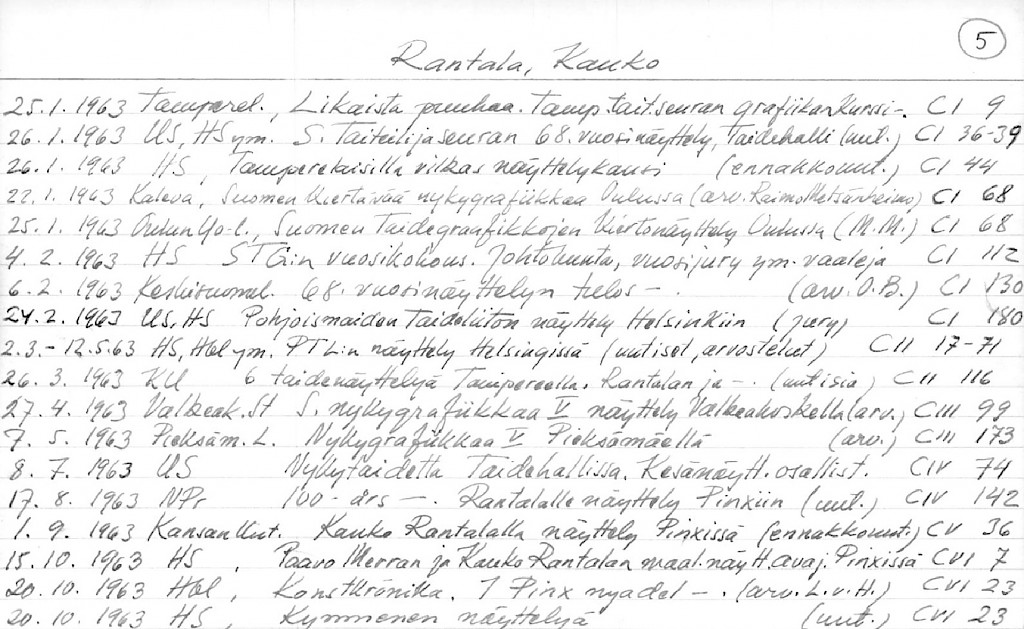 5
Rantala, Kauko
25.1.1963 Tamperel., Likaista puuhaa. Tamp.tait.seuran grafiikankurssi-. CI 9
26.1.1963 US, HS ym. S. Taiteilijaseuran 68.vuosinäyttely, Taidehalli (uut.) CI 36-39
26.1.1963 HS, Tamperelaisilla vilkas näyttelykausi (ennakkouut.) CI 44
22.1.1963 Kaleva, Suomen kiertävää nykygrafiikkaa Oulussa (arv. Raimo Metsänheimo) CI 68
25.1.1963 Oulun Yo-l., Suomen Taidegraafikkojen kiertonäyttely Oulussa (M.M.) CI 68
4.2.1963 HS STG:n vuosikokous. Johtokunta, vuosijury ym. vaaleja CI 112
6.2.1963 Keskisuomal. 68. vuosinäyttelyn tulos -. (arv. O.B.) CI 130
24.2.1963 US, HS Pohjoismaiden Taideliiton näyttely Helsinkiin (jury) CI 180
2.3.-12.5.63 HS, Hbl ym. PTL:n näyttely Helsingissä (uutiset, arvostelut) CII 17-71
26.3.1963 KU 6 taidenäyttelyä Tampereella. Rantalan ja -. (uutisia) CII 116
27.4.1963 Valkeak. St S. nykygrafiikkaa V näyttely Valkeakoskella (arv.) CIII 99
7.5.1963 Pieksäm. L. Nykygrafiikkaa V Pieksämäellä (arv.) CIII 173
8.7.1963 US Nykytaidetta Taidehallissa. Kesänäytt. osallist. CIV 74
17.8.1963 NPr 100-års -. Rantalalle näyttely Pinxiin (uut.) CIV 142
1.9.1963 Kansan Uut. Kauko Rantalalla näyttely Pinxissä (ennakkouut.) CV 36
15.10.1963 HS, Paavo Merran ja Kauko Rantalan maal.näytt. avaj. Pinxissä CVI 7
20.10.1963 Hbl, Konstkrönika. I Pinx nya del -. (arv. L.v.H.) CVI 23
20.10.1963 HS, Kymmenen näyttelyä (uut.) CVI 23